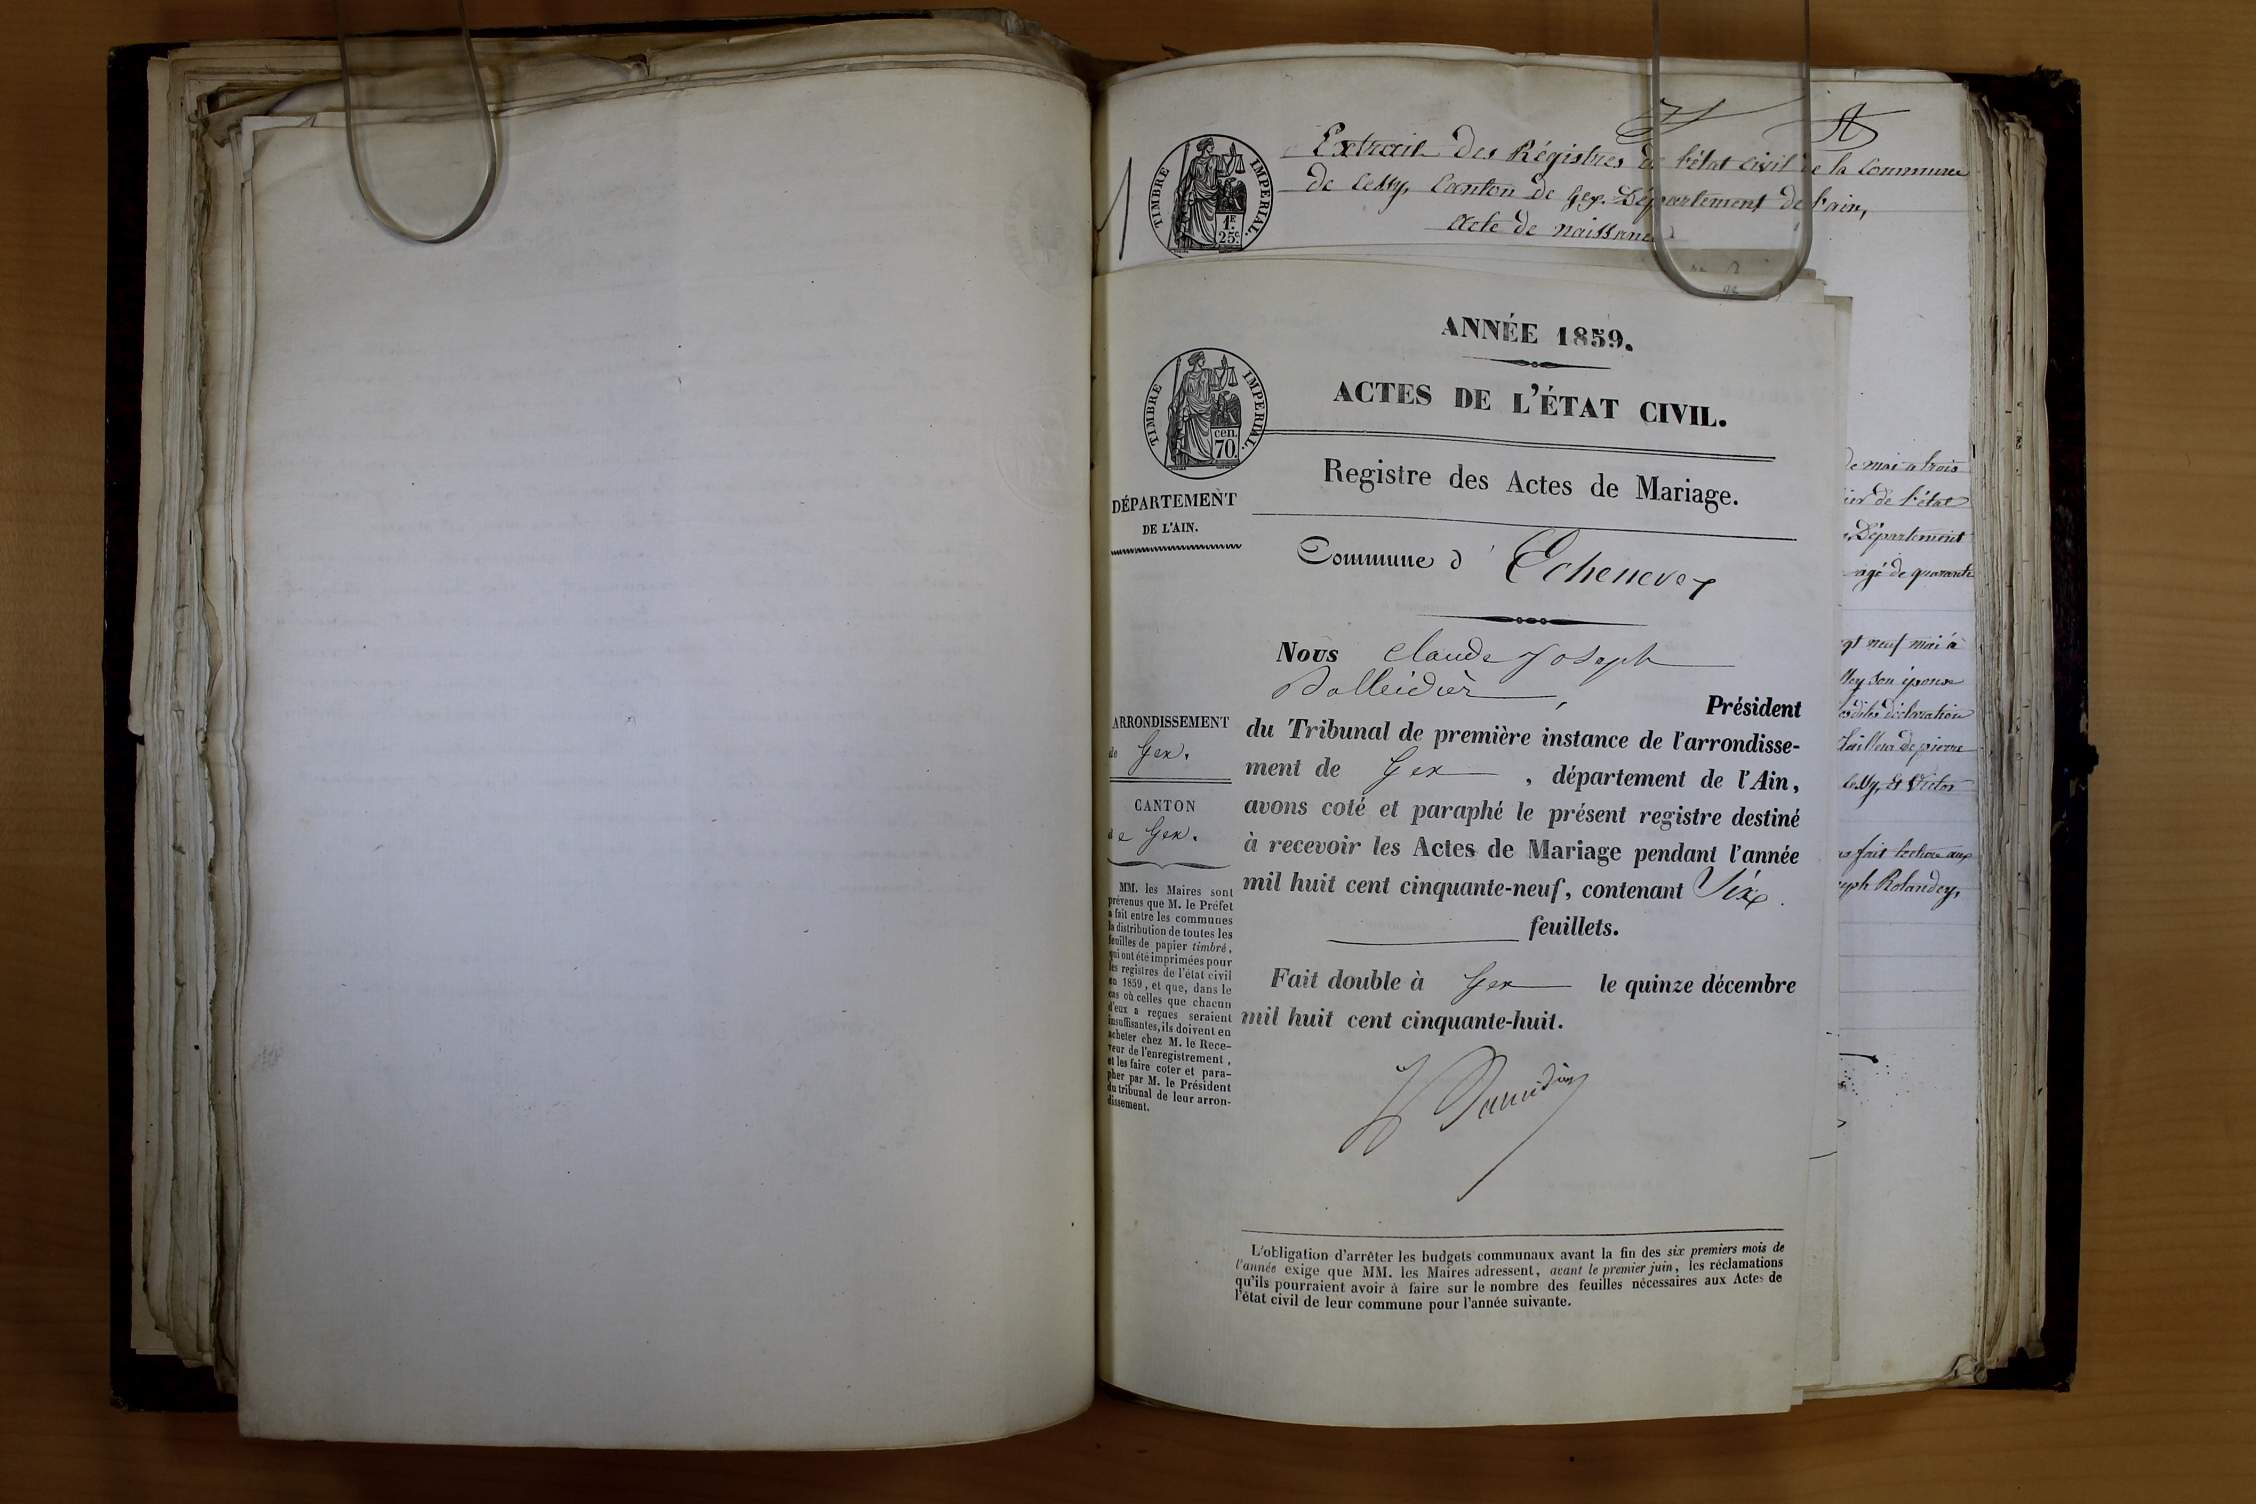 Extrait des Régistres de l'état civil de la Commune
de Cessy, Canton de Gex. Département de l'ain,
Acte de naissance
TIMBRE IMPERIAL.
1F.
25c.
ANNÉE 1859.
ACTES DE L'ÉTAT CIVIL.
TIMBRE IMPERIAL.
cen.
70.
Registre des Actes de Mariage.
DÉPARTEMENT
DE L'AIN.
Commune d' Echenevex
Nous Claude Joseph
Balleidier, Président
du Tribunal de première instance de l'arrondisse-
ment de Gex, département de l'Ain,
avons coté et paraphé le présent registre destiné
à recevoir les Actes de Mariage pendant l'année
mil huit cent cinquante-neuf, contenant Six
feuillets.
Fait double à Gex le quinze décembre
mil huit cent cinquante-huit.
ARRONDISSEMENT
de Gex.
CANTON
de Gex.
MM. les Maires sont
prévenus que M. le Préfet
a fait entre les communes
la distribution de toutes les
feuilles de papier timbré,
qui ont été imprimées pour
les registres de l'état civil
en 1859, et que, dans le
cas où celles que chacun
d'eux a reçues seraient
insuffisantes, ils doivent en
acheter chez M. le Rece-
veur de l'enregistrement,
et les faire coter et para-
pher par M. le Président
du tribunal de leur arron-
dissement.
L'obligation d'arrêter les budgets communaux avant la fin des six premiers mois de
l'année exige que MM. les Maires adressent, avant le premier juin, les réclamations
qu'ils pourraient avoir à faire sur le nombre des feuilles nécessaires aux Actes de
l'état civil de leur commune pour l'année suivante.
de mai à trois
de l'état
Département
agé de quarante
neuf mai à
son épouse
déclaration
tailleur de pierre
Cessy, et Victor
fait lecture aux
Rolandez,